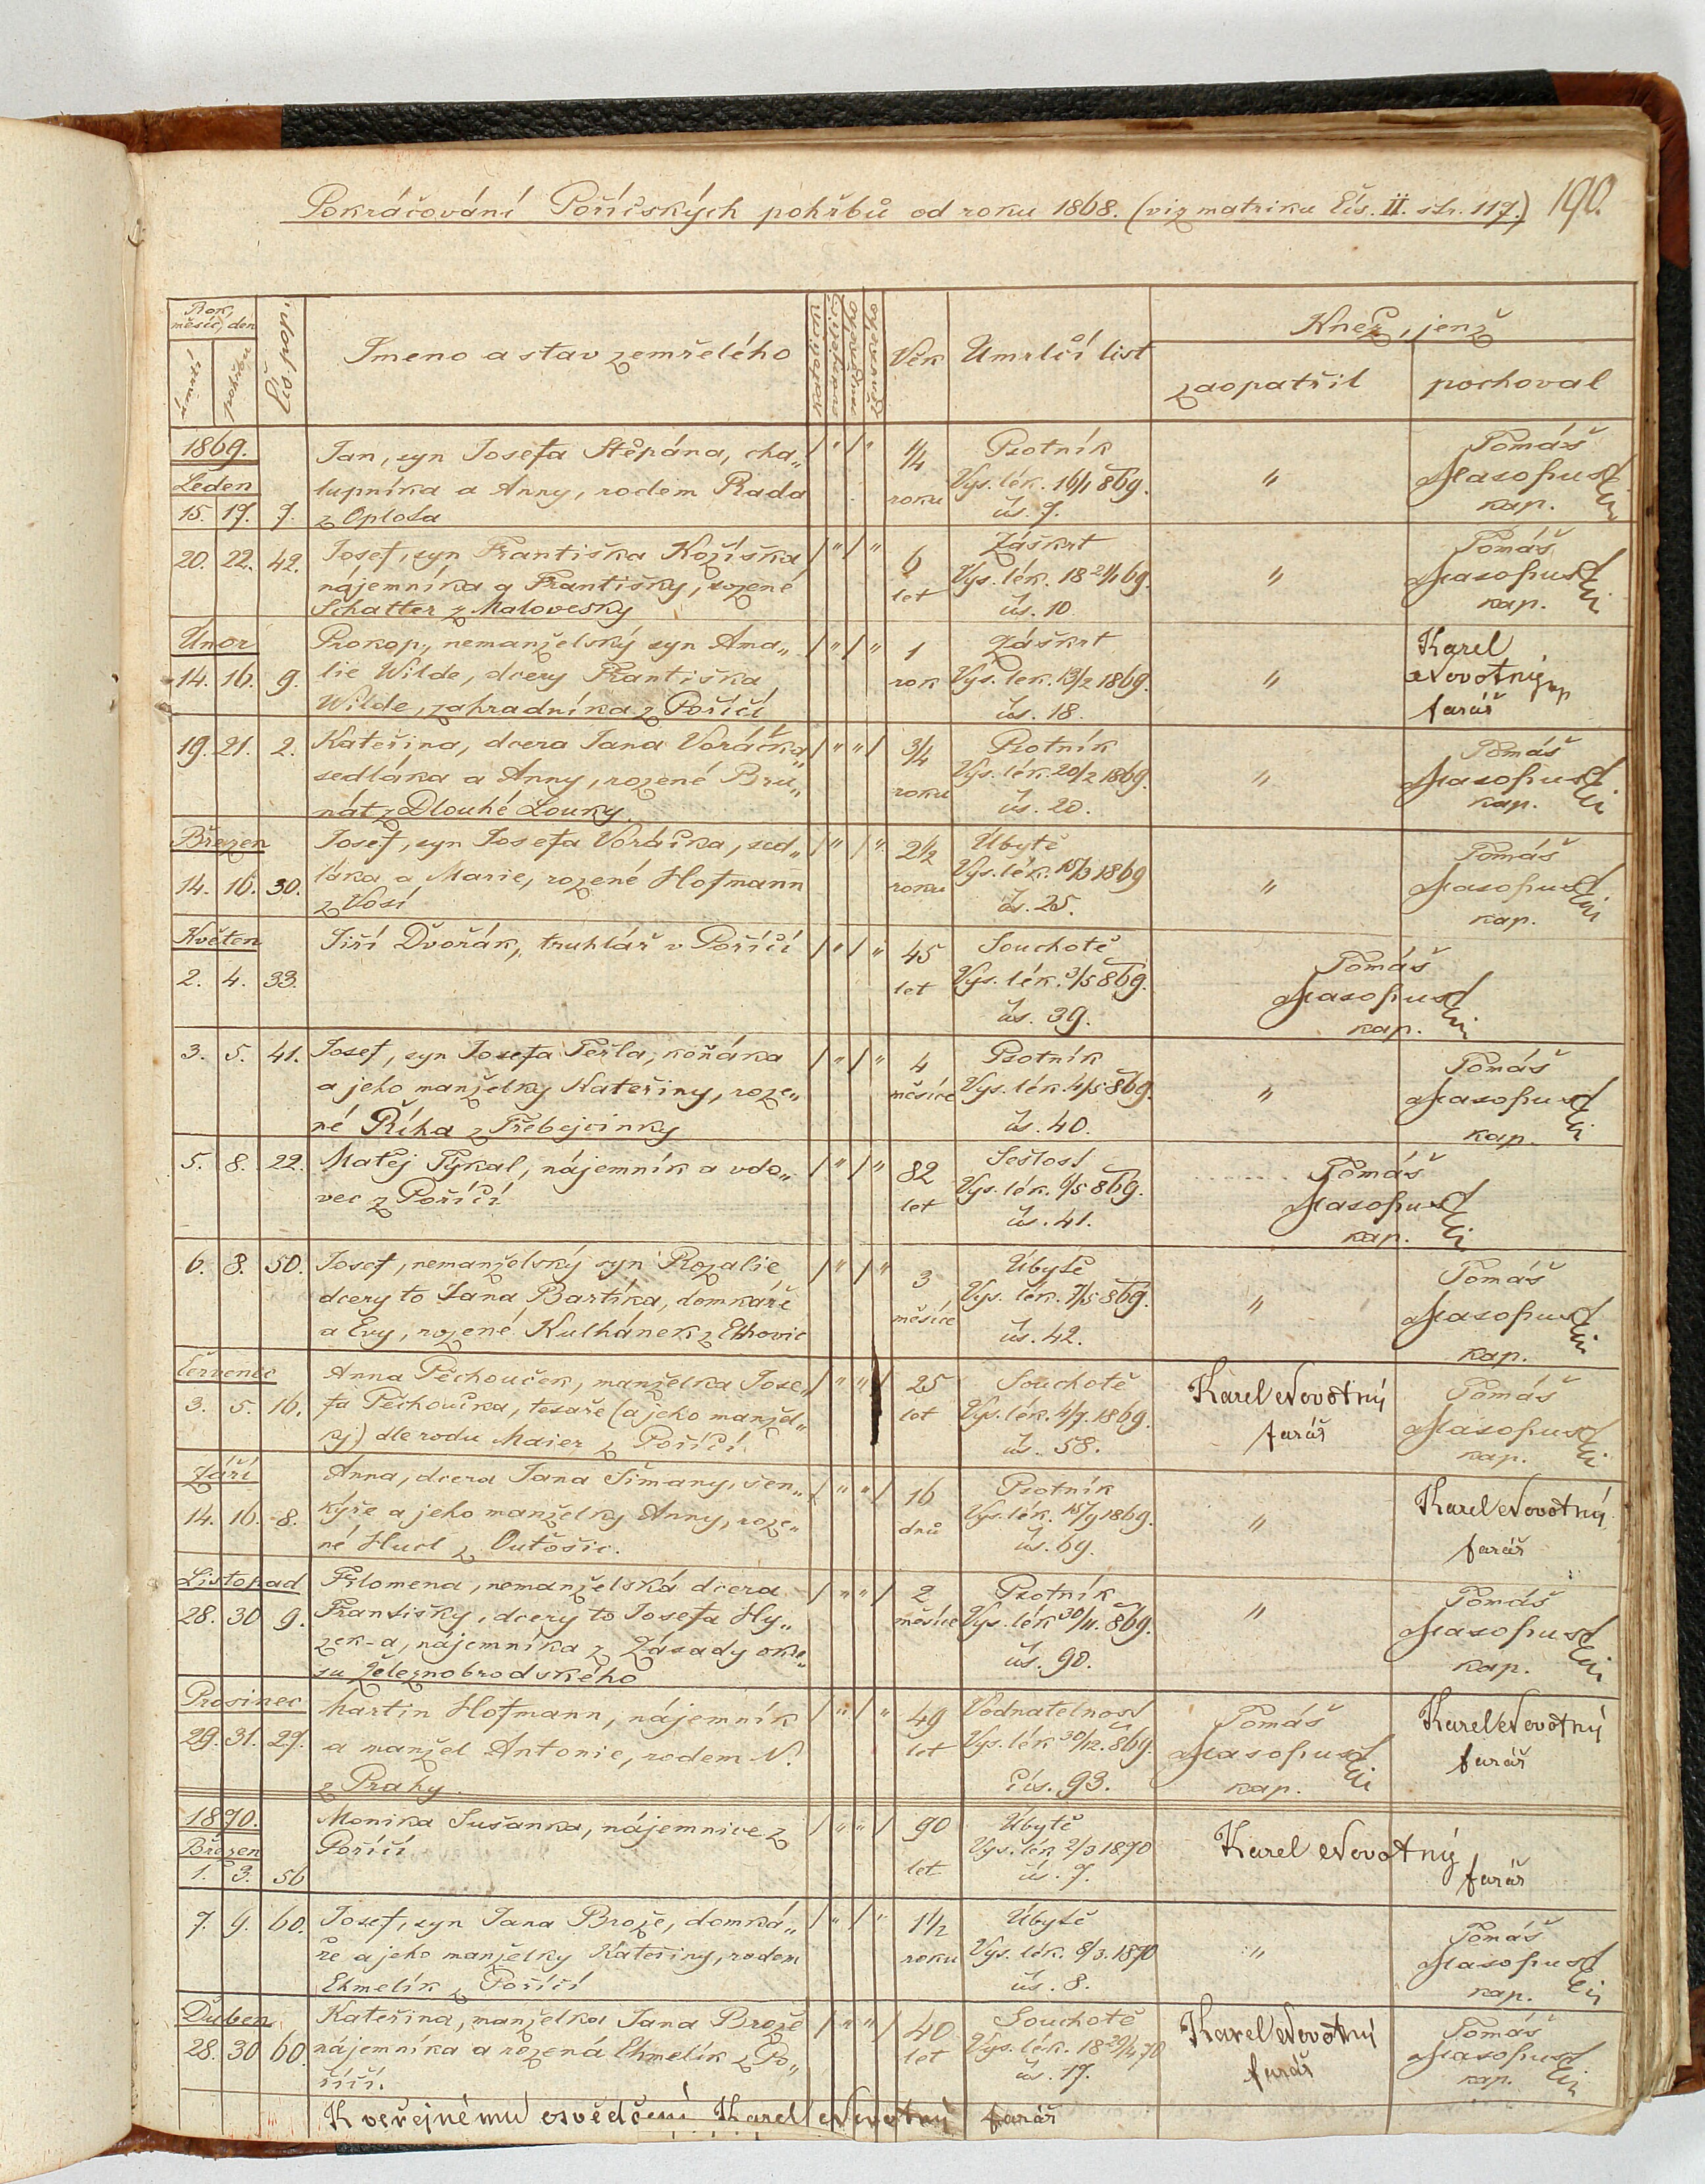 Pokráčování Poříčských pohřbů od roku 1868. (viz matriku čís. II. str. 117.) 190.
Rok, měsíc, den
úmrtí
pohřbu
Čís. domu
Jmeno a stav zemřelého
Věk
Umrlčí list
Kněz, jenž
zaopatřil
pochoval
1869.
Leden
15. 17. 7.
Jan, syn Josefa Štěpána, cha„
lupníka a Anny, rodem Rada
z Oplota
/ " / "
1/4
roku
Psotník
Vys. lék. 16/1 869.
čís. 7.
"
Tomáš
Masopust
kap.
20. 22. 42.
Josef, syn Františka Kožíška
nájemníka a Františky, rozené
Schatter z Malovesky
/ " / "
6
let
Záškrt
Vys. lék. 18 21/1 69.
čís. 10.
"
Tomáš
Masopust
kap.
Únor
14. 16. 9.
Prokop, nemanželský syn Ama„
lie Wilde, dcery Františka
Wilde, zahradníka z Poříčí
/ " / "
1
rok
Záškrt
Vys. lék. 13/2 1869.
čís. 18.
"
Karel
Novotný
farář
19. 21. 2.
Kateřina, dcera Jana Voráčka
sedláka a Anny, rozené Bru„
nát z Dlouhé Louky
/ " " /
3/4
roku
Psotník
Vys. lék. 20/2 1869.
čís. 20.
"
Tomáš
Masopust
kap.
Březen
14. 16. 30.
Josef, syn Josefa Voráčka, sed„
láka a Marie, rozené Hofmann
z Vosí
/ " / "
2 1/2
roku
Úbytě
Vys. lék. 15/3 1869
čís. 25.
"
Tomáš
Masopust
kap.
Květen
2. 4. 33.
Jiří Dvořák, truhlář v Poříčí
/ " / "
45
let
Souchotě
Vys. lék. 3/5 869.
čís. 39.
Tomáš
Masopust
kap.
3. 5. 41.
Josef, syn Josefa Peřla, koňáka
a jeho manželky Kateřiny, roze„
né Říha z Třebejcinky
/ " / "
4
měsíce
Psotník
Vys. lék. 4/5 869.
čís. 40.
"
Tomáš
Masopust
kap.
5. 8. 22.
Matěj Tykal, nájemník a vdo„
vec z Poříčí
/ " / "
82
let
Sešlost
Vys. lék. 6/5 869.
čís. 41.
Tomáš
Masopust
kap.
6. 8. 50.
Josef, nemanželský syn Rozalie
dcery to Jana Bartíka, domkáře
a Evy, rozené Kulhánek z Ethovic
/ " / "
3
měsíce
Úbytě
Vys. lék. 7/5 869.
čís. 42.
"
Tomáš
Masopust
kap.
Červenec
3. 5. 16.
Anna Pěchouček, manželka Jose„
fa Pěchoučka, tesaře (a jeho manžel„
ky) dle rodu Maier z Poříčí
/ " "
25
let
Souchotě
Vys. lék. 4/7. 1869.
čís. 58.
Karel Novotný
farář
Tomáš
Masopust
kap.
Září
14. 16. 8.
Anna, dcera Jana Šimany, šen„
kýře a jeho manželky Anny, roze„
né Hucl z Outěšic.
/ " " /
16
dnů
Psotník
Vys. lék. 15/9 1869.
čís. 69.
"
Karel Novotný
farář
Listopad
28. 30 9.
Filomena, nemanželská dcera
Františky, dcery to Josefa Hy„
zek-a, nájemníka z Zásady okre„
su Železnobrodského
/ " " /
2
měsíce
Psotník
Vys. lék 30/11. 869.
čís. 90.
"
Tomáš
Masopust
kap.
Prosinec
29. 31. 27.
Martin Hofmann, nájemník
a manžel Antonie, rodem N.
z Prahy.
/ " / "
49
let
Vodnatelnost
Vys. lék 30/12. 869.
čís. 93.
Tomáš
Masopust
kap.
Karel Novotný
farář
1870.
Březen
1. 3. 56
Monika Sušanka, nájemnice z
Poříčí
/ " " /
90
let
Úbytě
Vys. lék 2/3 1870
čís. 7.
Karel Novotný
farář
7. 9. 60.
Josef, syn Jana Brože, domká„
ře a jeho manželky Kateřiny, rodem
Chmelík z Poříčí
/ " / "
1 1/2
roku
Úbytě
Vys. lék. 8/3. 1870
čís. 8.
"
Tomáš
Masopust
kap.
Duben
28. 30 60.
Kateřina, manželka Jana Brože
nájemníka a rozená Chmelík z Po„
říčí.
/ " " /
40
let
Souchotě
Vys. lék. 18 29/4 70
čís. 17.
Karel Novotný
farář
Tomáš
Masopust
kap.
K veřejnému osvědčení Karel Novotný farář